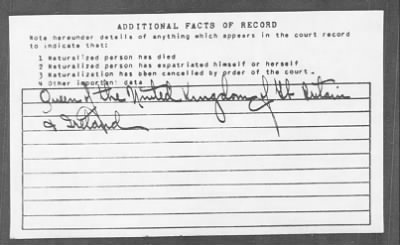 ADDITIONAL FACTS OF RECORD
Note hereunder details of anything which appears in the court record
to indicate that:
1 Naturalized person has died
2 Naturalized person has expatriated himself or herself
3 Naturalization has been cancelled by order of the court.
4 Other important data
Queen of the United Kingdom of Gt Britain
& Ireland